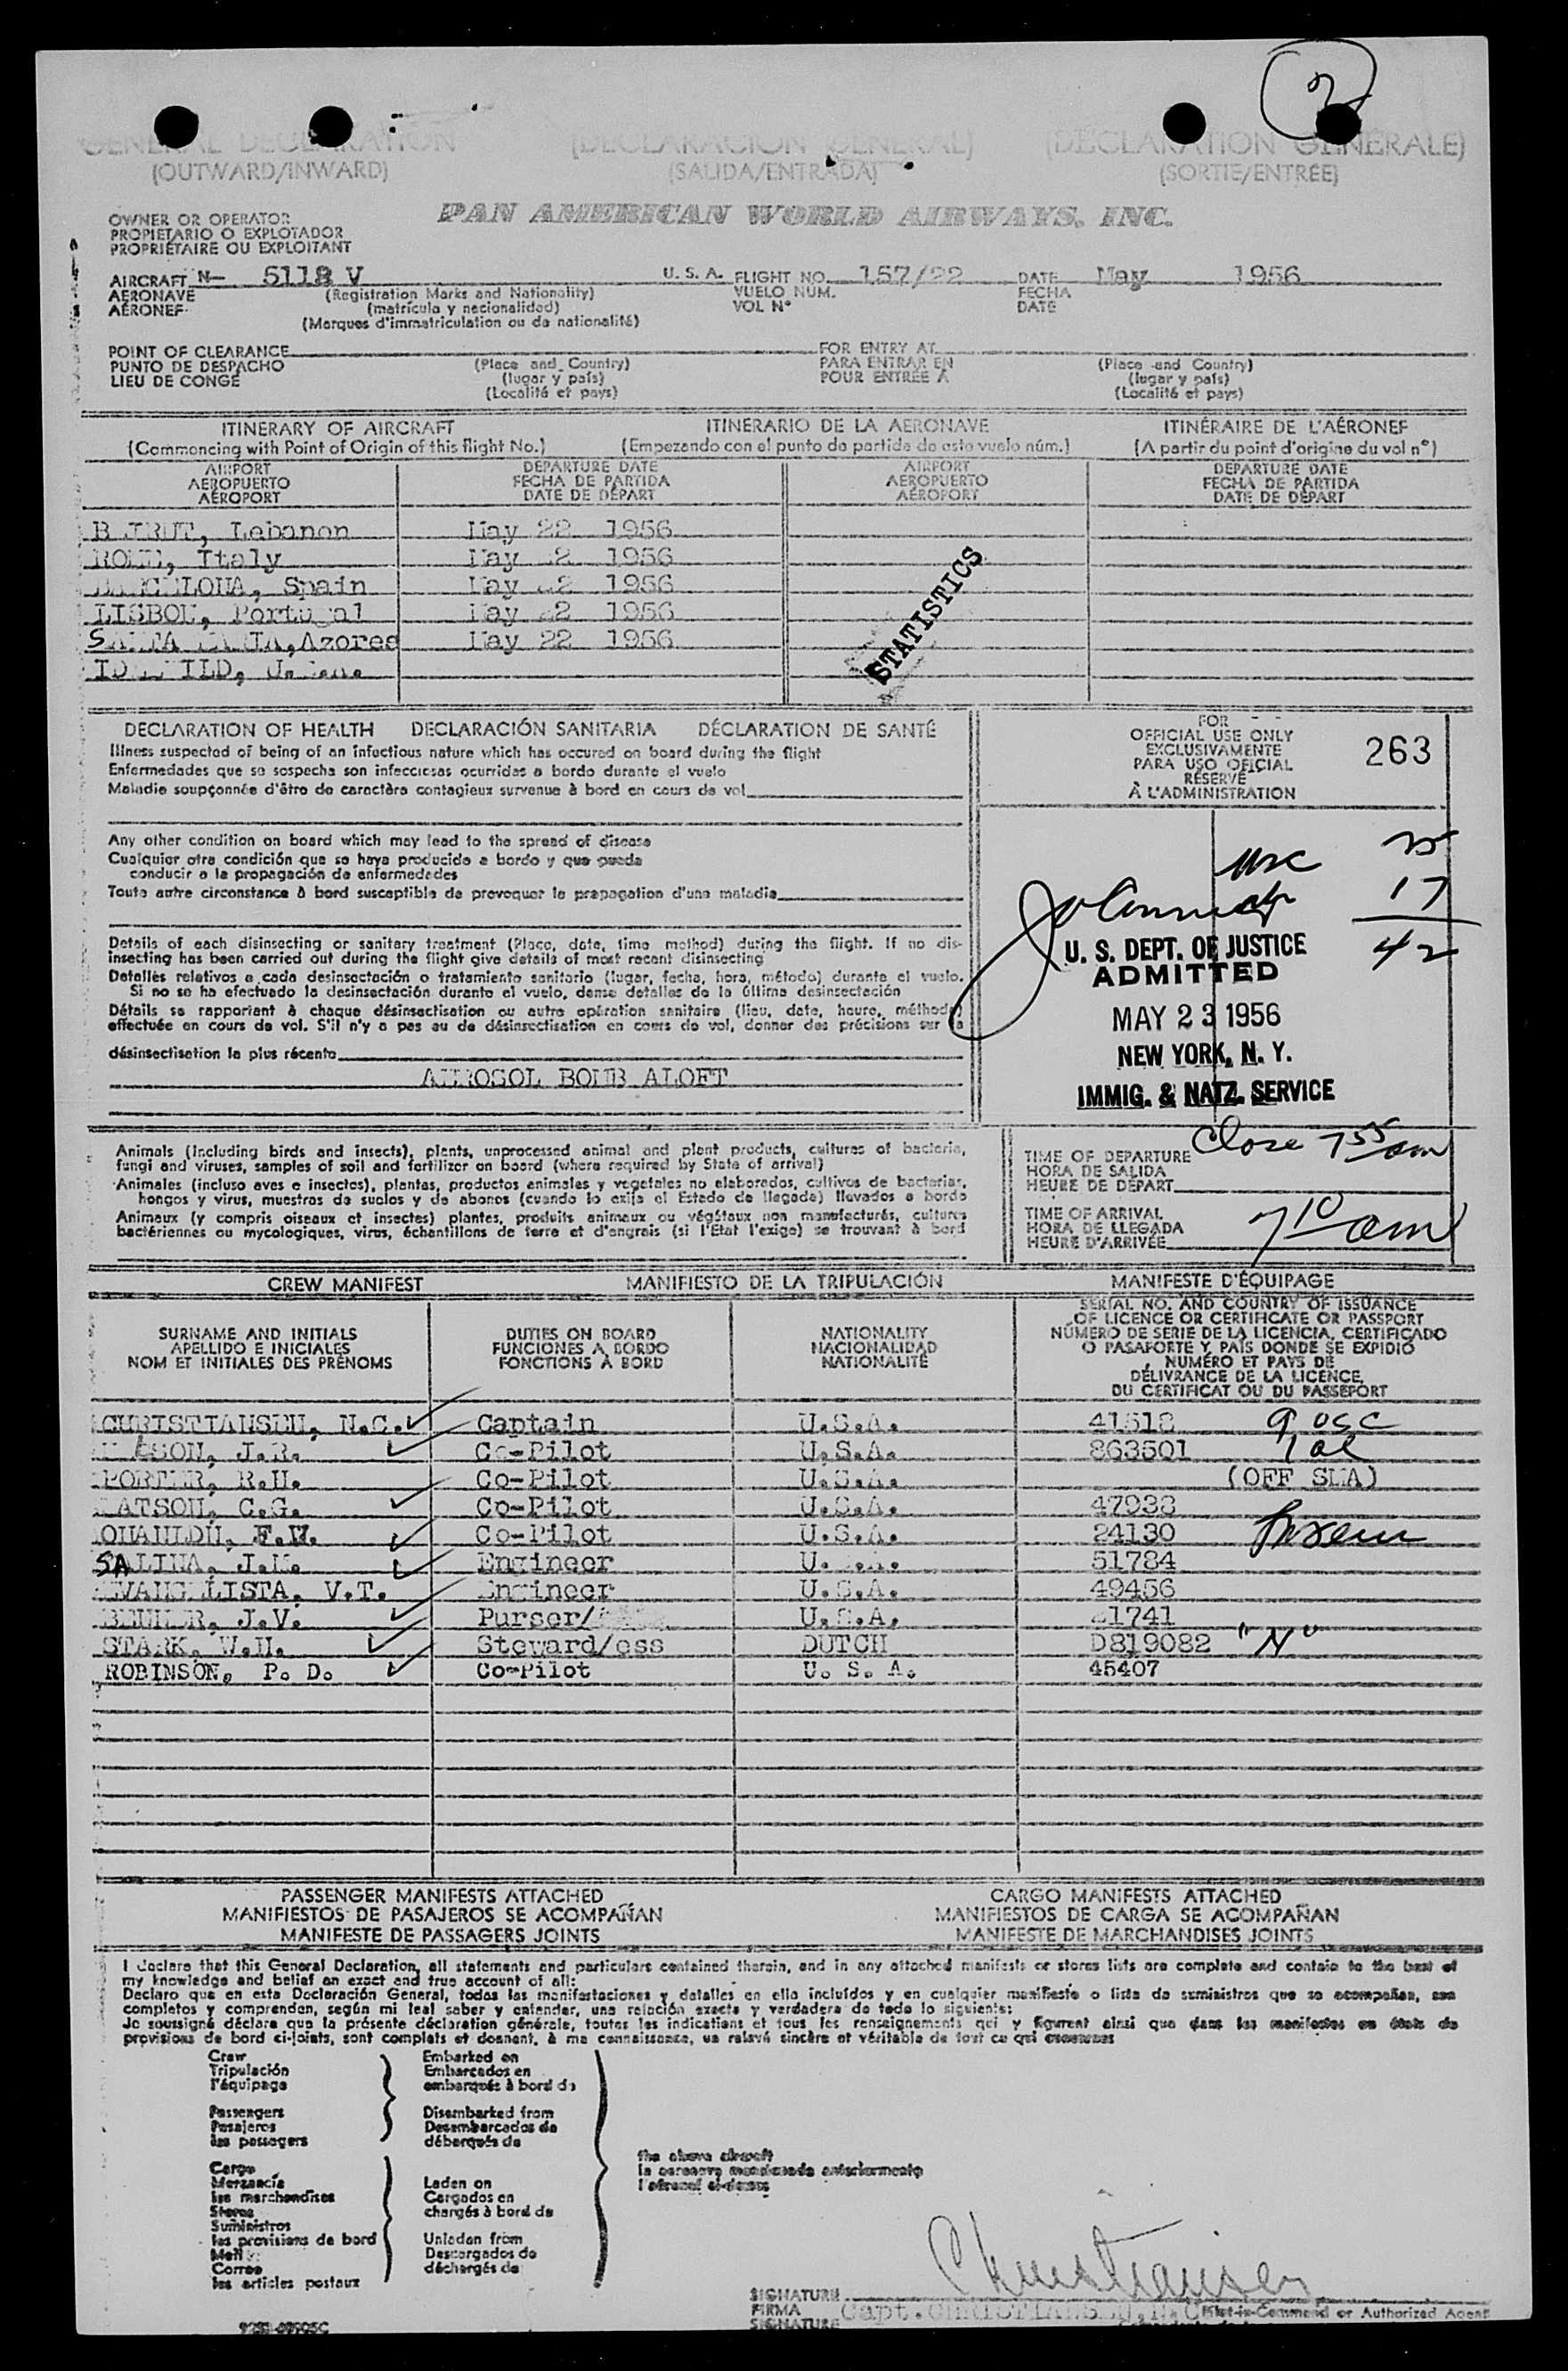 2
GENERAL DECLARATION (DECLARACION GENERAL) (DÉCLARATION GÉNÉRALE)
(OUTWARD/INWARD) (SALIDA/ENTRADA) (SORTIE/ENTRÉE)
OWNER OR OPERATOR
PROPIETARIO O EXPLOTADOR
PROPRIÉTAIRE OU EXPLOITANT
PAN AMERICAN WORLD AIRWAYS, INC.
AIRCRAFT N- 5118 V U. S. A. FLIGHT NO. 157/22 DATE May 1956
AERONAVE (Registration Marks and Nationality) VUELO NUM. FECHA
AÉRONEF (matrícula y nacionalidad) VOL N° DATE
(Marques d'immatriculation ou de nationalité)
POINT OF CLEARANCE FOR ENTRY AT
PUNTO DE DESPACHO (Place and Country) PARA ENTRAR EN (Place and Country)
LIEU DE CONGÉ (lugar y país) POUR ENTRÉE À (lugar y país)
(Localité et pays) (Localité et pays)
ITINERARY OF AIRCRAFT ITINERARIO DE LA AERONAVE ITINÉRAIRE DE L'AÉRONEF
(Commencing with Point of Origin of this flight No.) (Empezando con el punto de partida de este vuelo núm.) (A partir du point d'origine du vol n°)
AIRPORT DEPARTURE DATE AIRPORT DEPARTURE DATE
AEROPUERTO FECHA DE PARTIDA AEROPUERTO FECHA DE PARTIDA
AÉROPORT DATE DE DÉPART AÉROPORT DATE DE DÉPART
Lebanon May 22 1956
ROME, Italy May 1956
BARCELONA, Spain May 1956
LISBON, Portugal May 1956
SANTA MARIA, Azores May 22 1956
STATISTICS
DECLARATION OF HEALTH DECLARACIÓN SANITARIA DÉCLARATION DE SANTÉ
Illness suspected of being of an infectious nature which has occured on board during the flight
Enfermedades que se sospecha son infecciosas ocurridas a bordo durante el vuelo
Maladie soupçonnée d'être de caractère contagieux survenue à bord en cours de vol
Any other condition on board which may lead to the spread of disease
Cualquier otra condición que se haya producido a bordo y que pueda
conducir a la propagación de enfermedades
Toute autre circonstance à bord susceptible de provoquer la propagation d'une maladie
Details of each disinsecting or sanitary treatment (Place, date, time method) during the flight. If no dis-
insecting has been carried out during the flight give details of most recent disinsecting
Detalles relativos a cada desinsectación o tratamiento sanitario (lugar, fecha, hora, método) durante el vuelo.
Si no se ha efectuado la desinsectación durante el vuelo, dense detalles de la última desinsectación
Détails se rapportant à chaque désinsectisation ou autre opération sanitaire (lieu, date, heure, méthode)
effectuée en cours de vol. S'il n'y a pas eu de désinsectisation en cours de vol, donner des précisions sur la
désinsectisation la plus récente
AEROSOL BOMB ALOFT
FOR
OFFICIAL USE ONLY
EXCLUSIVAMENTE
PARA USO OFICIAL
RÉSERVÉ
À L'ADMINISTRATION
263
usc 25
17
42
U. S. DEPT. OF JUSTICE
ADMITTED
MAY 23 1956
NEW YORK, N. Y.
IMMIG. & NATZ. SERVICE
Animals (including birds and insects), plants, unprocessed animal and plant products, cultures of bacteria,
fungi and viruses, samples of soil and fertilizer on board (where required by State of arrival)
Animales (incluso aves e insectos), plantas, productos animales y vegetales no elaborados, cultivos de bacterias,
hongos y virus, muestras de suelos y de abonos (cuando lo exija el Estado de llegada) llevados a bordo
Animaux (y compris oiseaux et insectes) plantes, produits animaux ou végétaux non manufacturés, cultures
bactériennes ou mycologiques, virus, échantillons de terre et d'engrais (si l'Etat l'exige) se trouvant à bord
Close 7 55 am
TIME OF DEPARTURE
HORA DE SALIDA
HEURE DE DÉPART
TIME OF ARRIVAL 7 10 am
HORA DE LLEGADA
HEURE D'ARRIVÉE
CREW MANIFEST MANIFIESTO DE LA TRIPULACIÓN MANIFESTE D'ÉQUIPAGE
SURNAME AND INITIALS
APELLIDO E INICIALES
NOM ET INITIALES DES PRÉNOMS
DUTIES ON BOARD
FUNCIONES A BORDO
FONCTIONS À BORD
NATIONALITY
NACIONALIDAD
NATIONALITÉ
SERIAL NO. AND COUNTRY OF ISSUANCE
OF LICENCE OR CERTIFICATE OR PASSPORT
NÚMERO DE SERIE DE LA LICENCIA, CERTIFICADO
O PASAPORTE Y PAÍS DONDE SE EXPIDIÓ
NUMÉRO ET PAYS DE
DÉLIVRANCE DE LA LICENCE,
DU CERTIFICAT OU DU PASSEPORT
CHRISTIANSEN, N.C. Captain U.S.A. 41518 9 usc
J.R. Co-Pilot U.S.A. 863501 1 al
PORTER, R.H. Co-Pilot U.S.A. (OFF SMA)
C.G. Co-Pilot U.S.A. 47938
F.W. Co-Pilot U.S.A. 24130
SALINA, J.M. Engineer U.S.A. 51784
EVANGELISTA, V.T. Engineer U.S.A. 49456
J.V. Purser/ U.S.A. 1741
STARK, W.H. Steward/ess DUTCH D819082 "N"
ROBINSON, P. D. Co-Pilot U. S. A. 45407
PASSENGER MANIFESTS ATTACHED CARGO MANIFESTS ATTACHED
MANIFIESTOS DE PASAJEROS SE ACOMPAÑAN MANIFIESTOS DE CARGA SE ACOMPAÑAN
MANIFESTE DE PASSAGERS JOINTS MANIFESTE DE MARCHANDISES JOINTS
I declare that this General Declaration, all statements and particulars contained therein, and in any attached manifests or stores lists are complete and contain to the best of
my knowledge and belief an exact and true account of all:
Declaro que en esta Declaración General, todas las manifestaciones y detalles en ella incluídos y en cualquier manifiesto o lista de suministros que se acompañan, son
completos y comprenden, según mi leal saber y entender, una relación exacta y verdadera de todo lo siguiente:
Je soussigné déclare que la présente déclaration générale, toutes les indications et tous les renseignements qui y figurent ainsi que dans les manifestes ou états de
provisions de bord ci-joints, sont complets et donnent, à ma connaissance, un relevé sincère et véritable de tout ce qui
Crew Embarked on
Tripulación Embarcados en
l'équipage embarqués à bord de
Passengers Disembarked from
Pasajeros Desembarcados de
les passagers débarqués de
the above aircraft
la aeronave mencionada anteriormente
l'aéronef ci-dessus
Cargo
Mercancía Laden on
les marchandises Cargados en
Stores chargés à bord de
Suministros
les provisions de bord Unladen from
Mail Descargados de
Correo déchargés de
les articles postaux
Christiansen
SIGNATURE
FIRMA Capt. CHRISTIANSEN, N.C. Pilot-in-Command or Authorized Agent
SIGNATURE